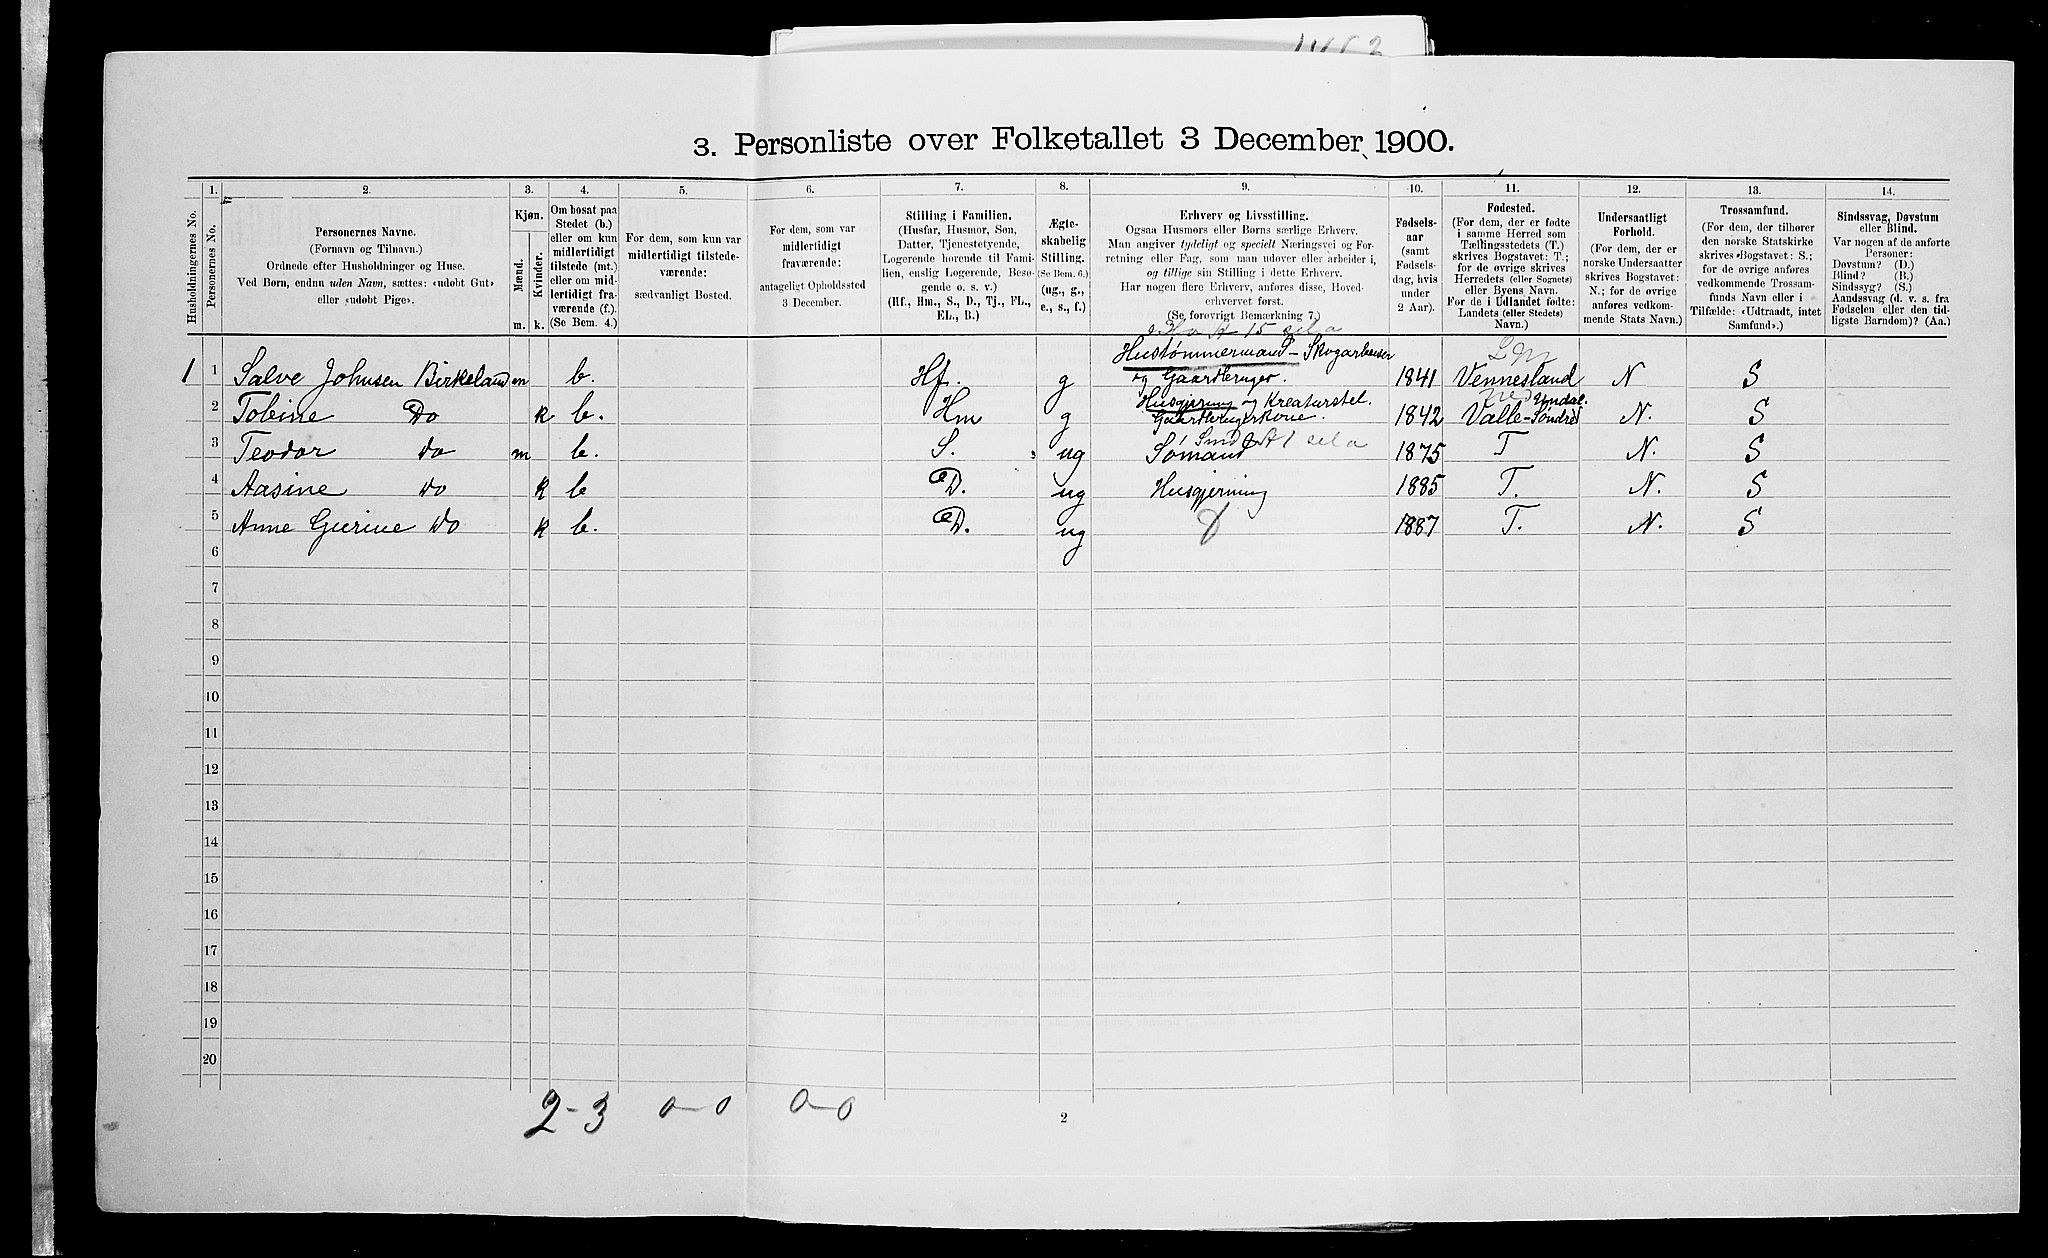 3. Personliste over Folketallet 3 December 1900.
1. 2. 3. 4. 5. 6. 7. 8. 9. 10. 11. 12. 13. 14.
Husholdningernes No.
Personernes No.
Personernes Navne.
(Fornavn og Tilnavn.)
Ordnede efter Husholdninger og Huse.
Ved Børn, endnu uden Navn, sættes: «udøbt Gut»
eller «udøbt Pige».
Kjøn.
Mænd.
Kvinder.
m. k.
Om bosat paa
Stedet (b.)
eller om kun
midlertidigt
tilstede (mt.)
eller om mid-
lertidigt fra-
værende (f.)
(Se Bem. 4.)
For dem, som kun var
midlertidigt tilstede-
værende:
sædvanligt Bosted.
For dem, som var
midlertidigt
fraværende:
antageligt Opholdssted
3 December.
Stilling i Familien.
(Husfar, Husmor, Søn,
Datter, Tjenestetyende,
Logerende hørende til Fami-
lien, enslig Logerende, Besø-
gende o. s. v.)
(Hf., Hm., S., D., Tj., FL.,
EL., B.)
Ægte-
skabelig
Stilling.
(Se Bem. 6.)
(ug., g.,
e., s., f.)
Erhverv og Livsstilling.
Ogsaa Husmors eller Børns særlige Erhverv.
Man angiver tydeligt og specielt Næringsvei og For-
retning eller Fag, som man udover eller arbeider i,
og tillige sin Stilling i dette Erhverv.
Har nogen flere Erhverv, anføres disse, Hoved-
erhvervet først.
(Se forøvrigt Bemærkning 7.)
Fødsels-
aar
(samt
Fødsels-
dag, hvis
under
2 Aar).
Fødested.
(For dem, der er fødte
i samme Herred som
Tællingsstedets (T.)
skrives Bogstavet: T.;
for de øvrige skrives
Herredets (eller Sognets)
eller Byens Navn.
For de i Udlandet fødte:
Landets (eller Stedets)
Navn.)
Undersaatligt
Forhold.
(For dem, der er
norske Undersaatter
skrives Bogstavet:
N.; for de øvrige
anføres vedkom-
mende Stats Navn.)
Trossamfund.
(For dem, der tilhører
den norske Statskirke
skrives «Bogstavet: S.;
for de øvrige anføres
vedkommende Trossam-
funds Navn eller i
Tilfælde: «Udtraadt, intet
Samfund».)
Sindssvag, Døvstum
eller Blind.
Var nogen af de anførte
Personer:
Døvstum? (D.)
Blind? (B.)
Sindssyg? (S.)
Aandssvag (d. v. s. fra
Fødselen eller den tid-
ligste Barndom)? (Aa.)
15 sel a
Hustømmermand - Skogarbeider
1 1 Salve Johnsen Birkeland m b. Hf. g og Gaardbruger. 1841 Vennesland N S
Husgjerning og Kreaturstel. Undal.
2 Tobine Do k b. Hm g Gaardbrugerkone. 1842 Valle-Søndre N. S
sel a
3 Teodor do m b. S. ug Sømand 1875 T N. S
4 Aasine do k b D. ug Husgjerning 1885 T. N. S
5 Anne Gurine do k b. D. ug 1887 T. N. S
6
7
8
9
10
11
12
13
14
15
16
17
18
19
20
2-3 0-0 0-0
2